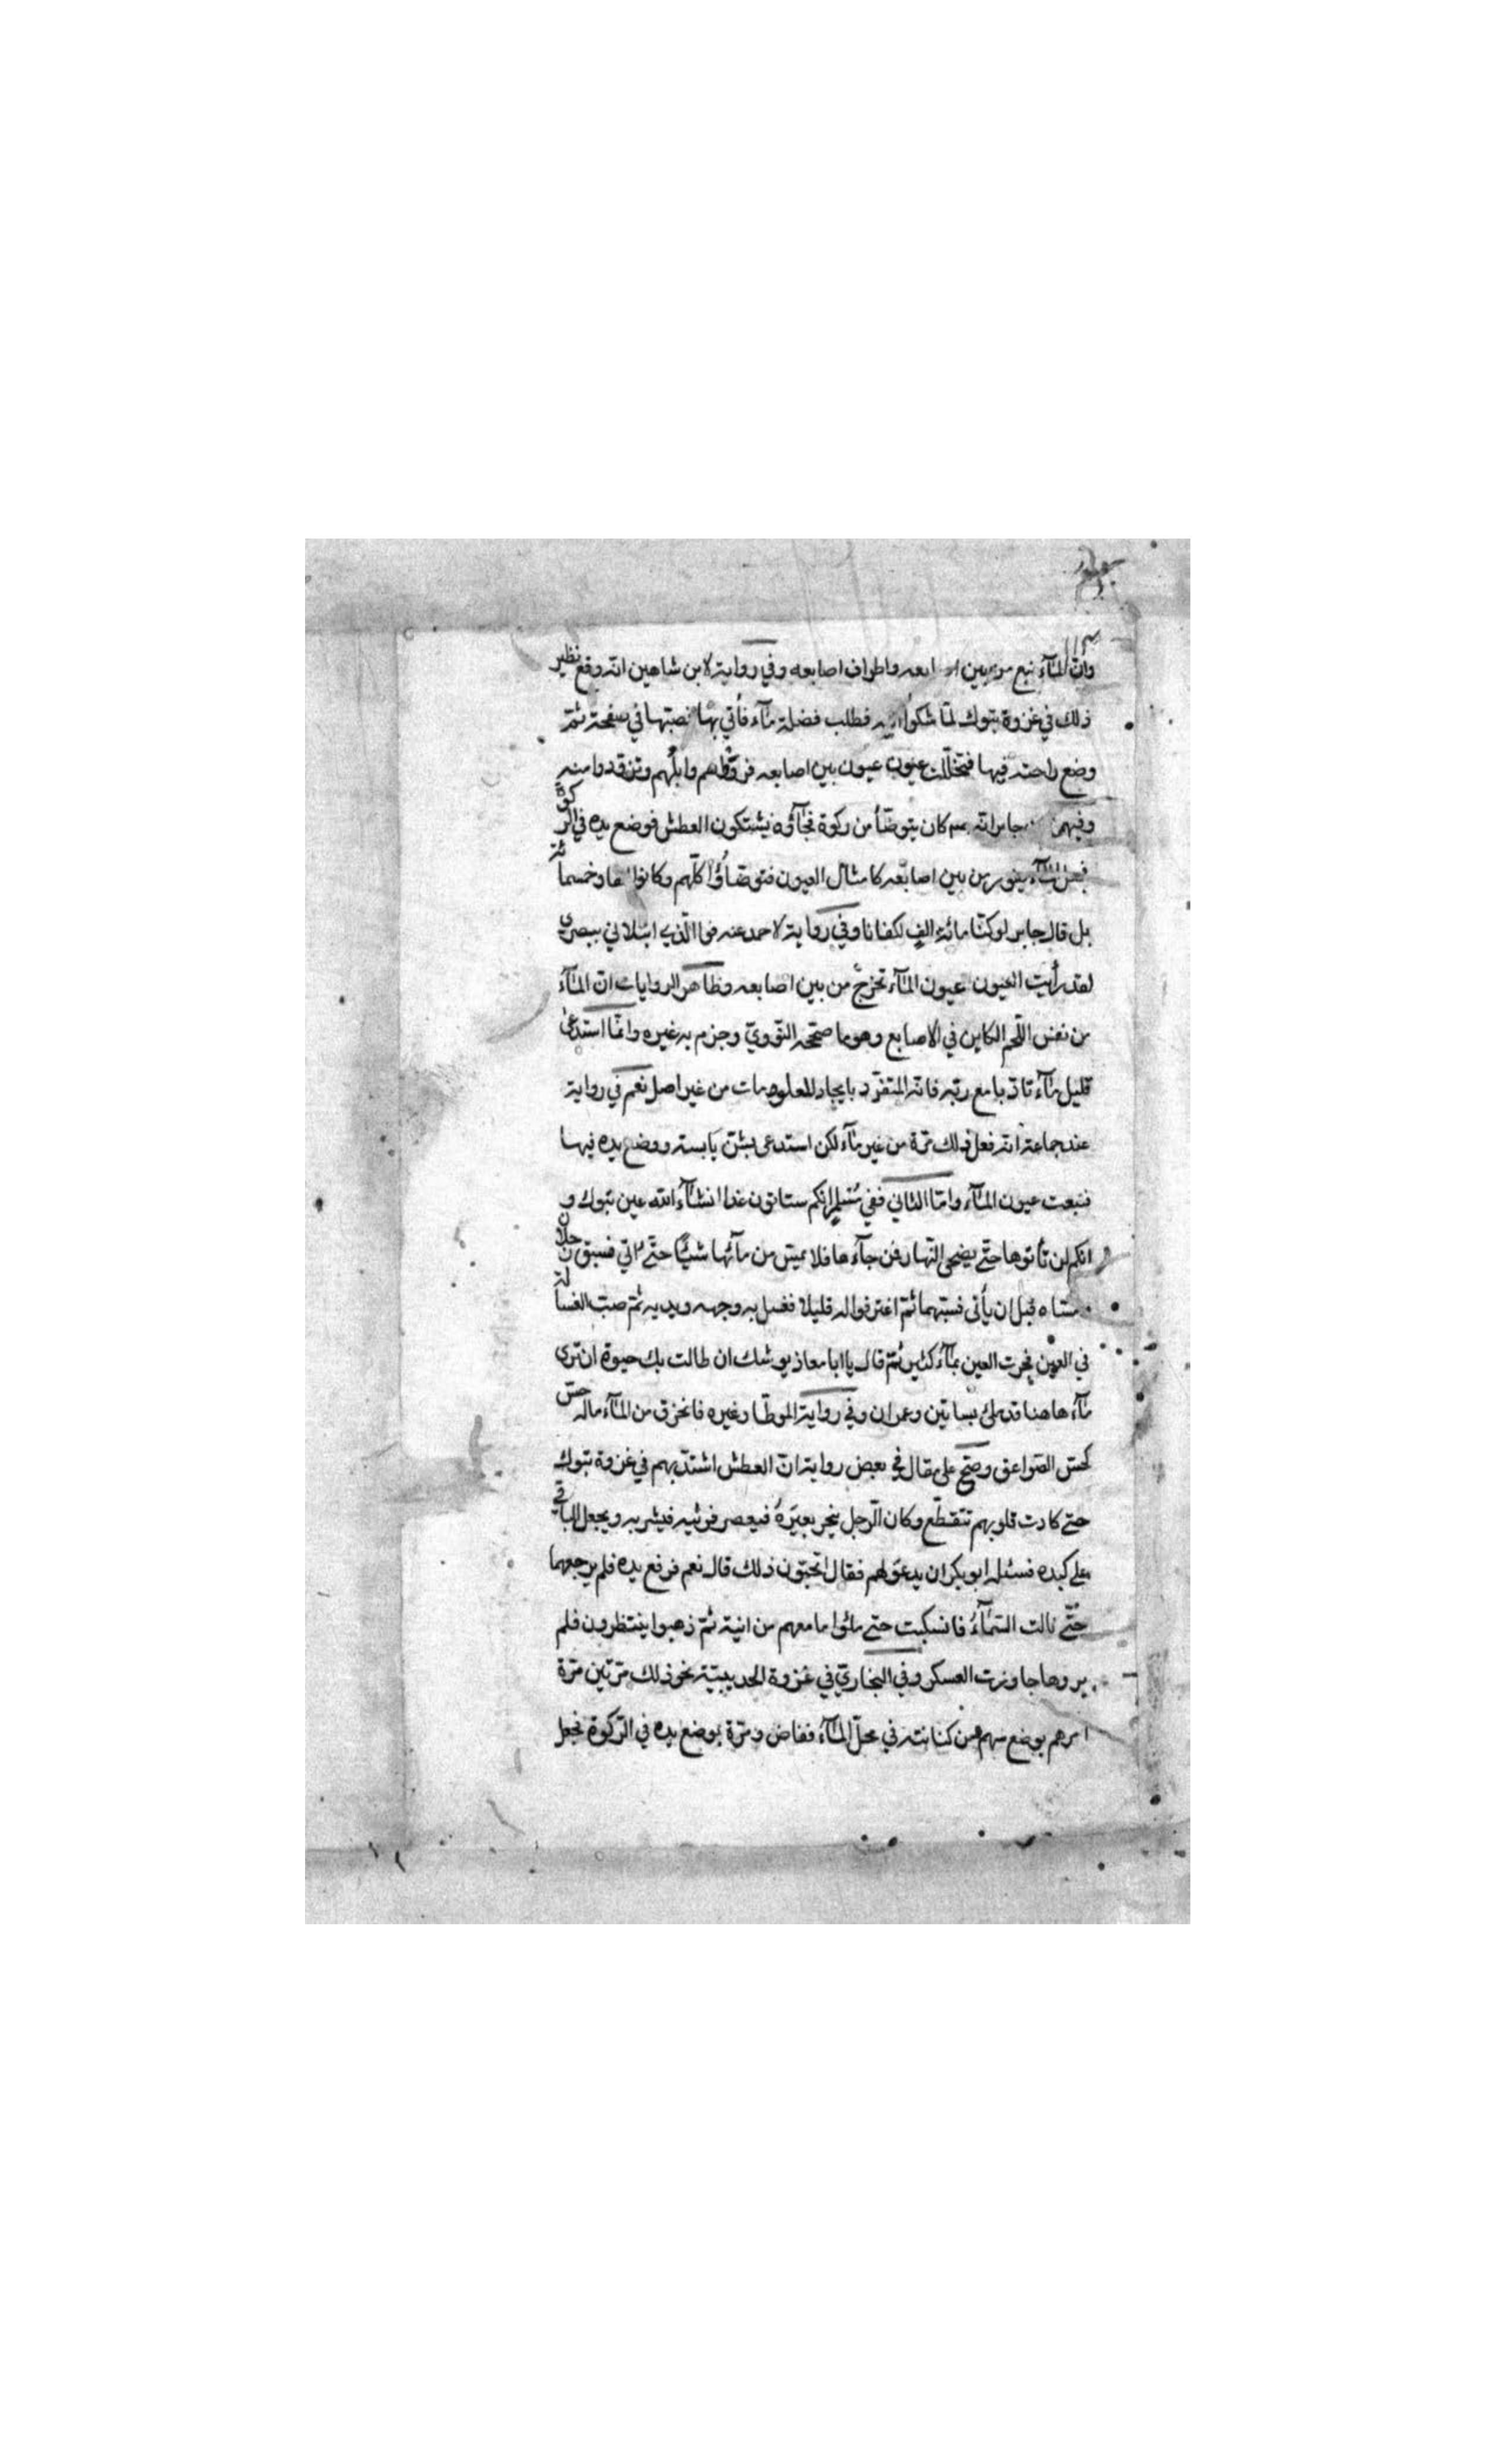 وانّ المآء نبع من بين اصابعه واطراف اصابعه وفي رواية لابن شاهين انّه وقع نظير
ذلك في غزوة تبوك لمّا شكوا فطلب فضلة مآء فأتي بها فصبّها في صفحة ثمّ
وضع راحته فيها فتخلّلت عيون عيون بين اصابعه فروّوا وابلهم وتزوّدوا منه
وفيهما جابر انّه كان يتوضّأ من ركوة فجآؤه يشتكون العطش فوضع يده في الركوة
فجعل المآء يفور من بين اصابعه كامثال العيون فتوضّاؤا كلّهم وكانوا الفا وخمسمائة
بل قال جابر لو كنّا مائة الف لكفانا وفي رواية لاحمد عنه فوالّذي ابتلاني ببصري
لقد رأيت العيون عيون المآء تخرج من بين اصابعه وظاهر الروايات انّ المآء
من نفس اللّحم الكاين في الاصابع وهو ما صحّحه النّوويّ وجزم به غيره وانّما استدعى
قليل مآء تادّبا مع ربّه فانّه المتفرّد بايجاد المعلومات من غير اصل نعم في رواية
عند جماعة انّه فعل ذلك مرّة من غير مآء لكن استدعى بشنّ يابسة ووضع يده فيها
فنبعت عيون المآء وامّا الثاني ففي مسلم انكم ستاتون غدا انشآء الله عين تبوك و
انكم لن تأتوها حتّى يضحى النّهار فمن جآءها فلا يمسّ من مآئها شيئا حتّى اتي فسبق رجلان
مسّاه قبل ان يأتى فسبّهما ثمّ اغترفوا له قليلا فغسل به وجهه ويديه ثمّ صبّ الغسالة
في العين فجرت العين بمآء كثير ثمّ قال يا ابا معاذ يوشك ان طالت بك حيوة ان ترى
مآء هاهنا قد ملئ بساتين وعمران وفي رواية الموطّا وغيره فانخرق من المآء ماله حسّ
كحسّ الصّواعق وصحّ على مقال في بعض رواية انّ العطش اشتدّ بهم في غزوة تبوك
حتى كادت قلوبهم تتقطّع وكان الرّجل ينحر بعيره فيعصر فرثيه فيشربه ويجعل الباقي
على كبده فسئله ابو بكر ان يدعو لهم فقال اتحبّون ذلك قال نعم فرفع يده فلم يرجعهما
حتّى نالت السّمآء فانسكبت حتى ملئوا ما معهم من انية ثمّ ذهبوا ينتظرون فلم
يروها جاوزت العسكر وفي البخاريّ في غزوة الحديبيّة نحو ذلك مرّتين مرّة
امرهم بوضع سهم من كنانته في محلّ المآء ففاض ومرّة بوضع يده في الرّكوة فجعل